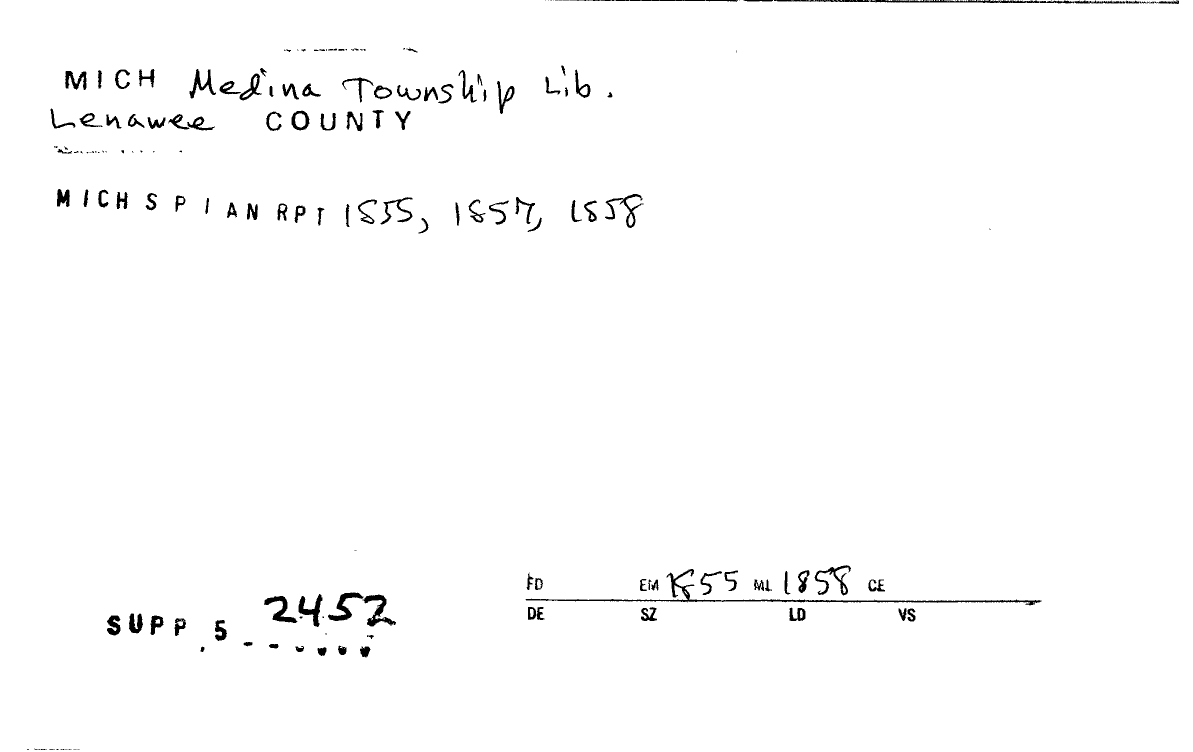 MICH Medina Township Lib.
Lenawee COUNTY
MICH S P I AN RPT 1855, 1857, 1858
FD EM 1855 ML 1858 CE
DE SZ LD VS
SUPP. 5 2452